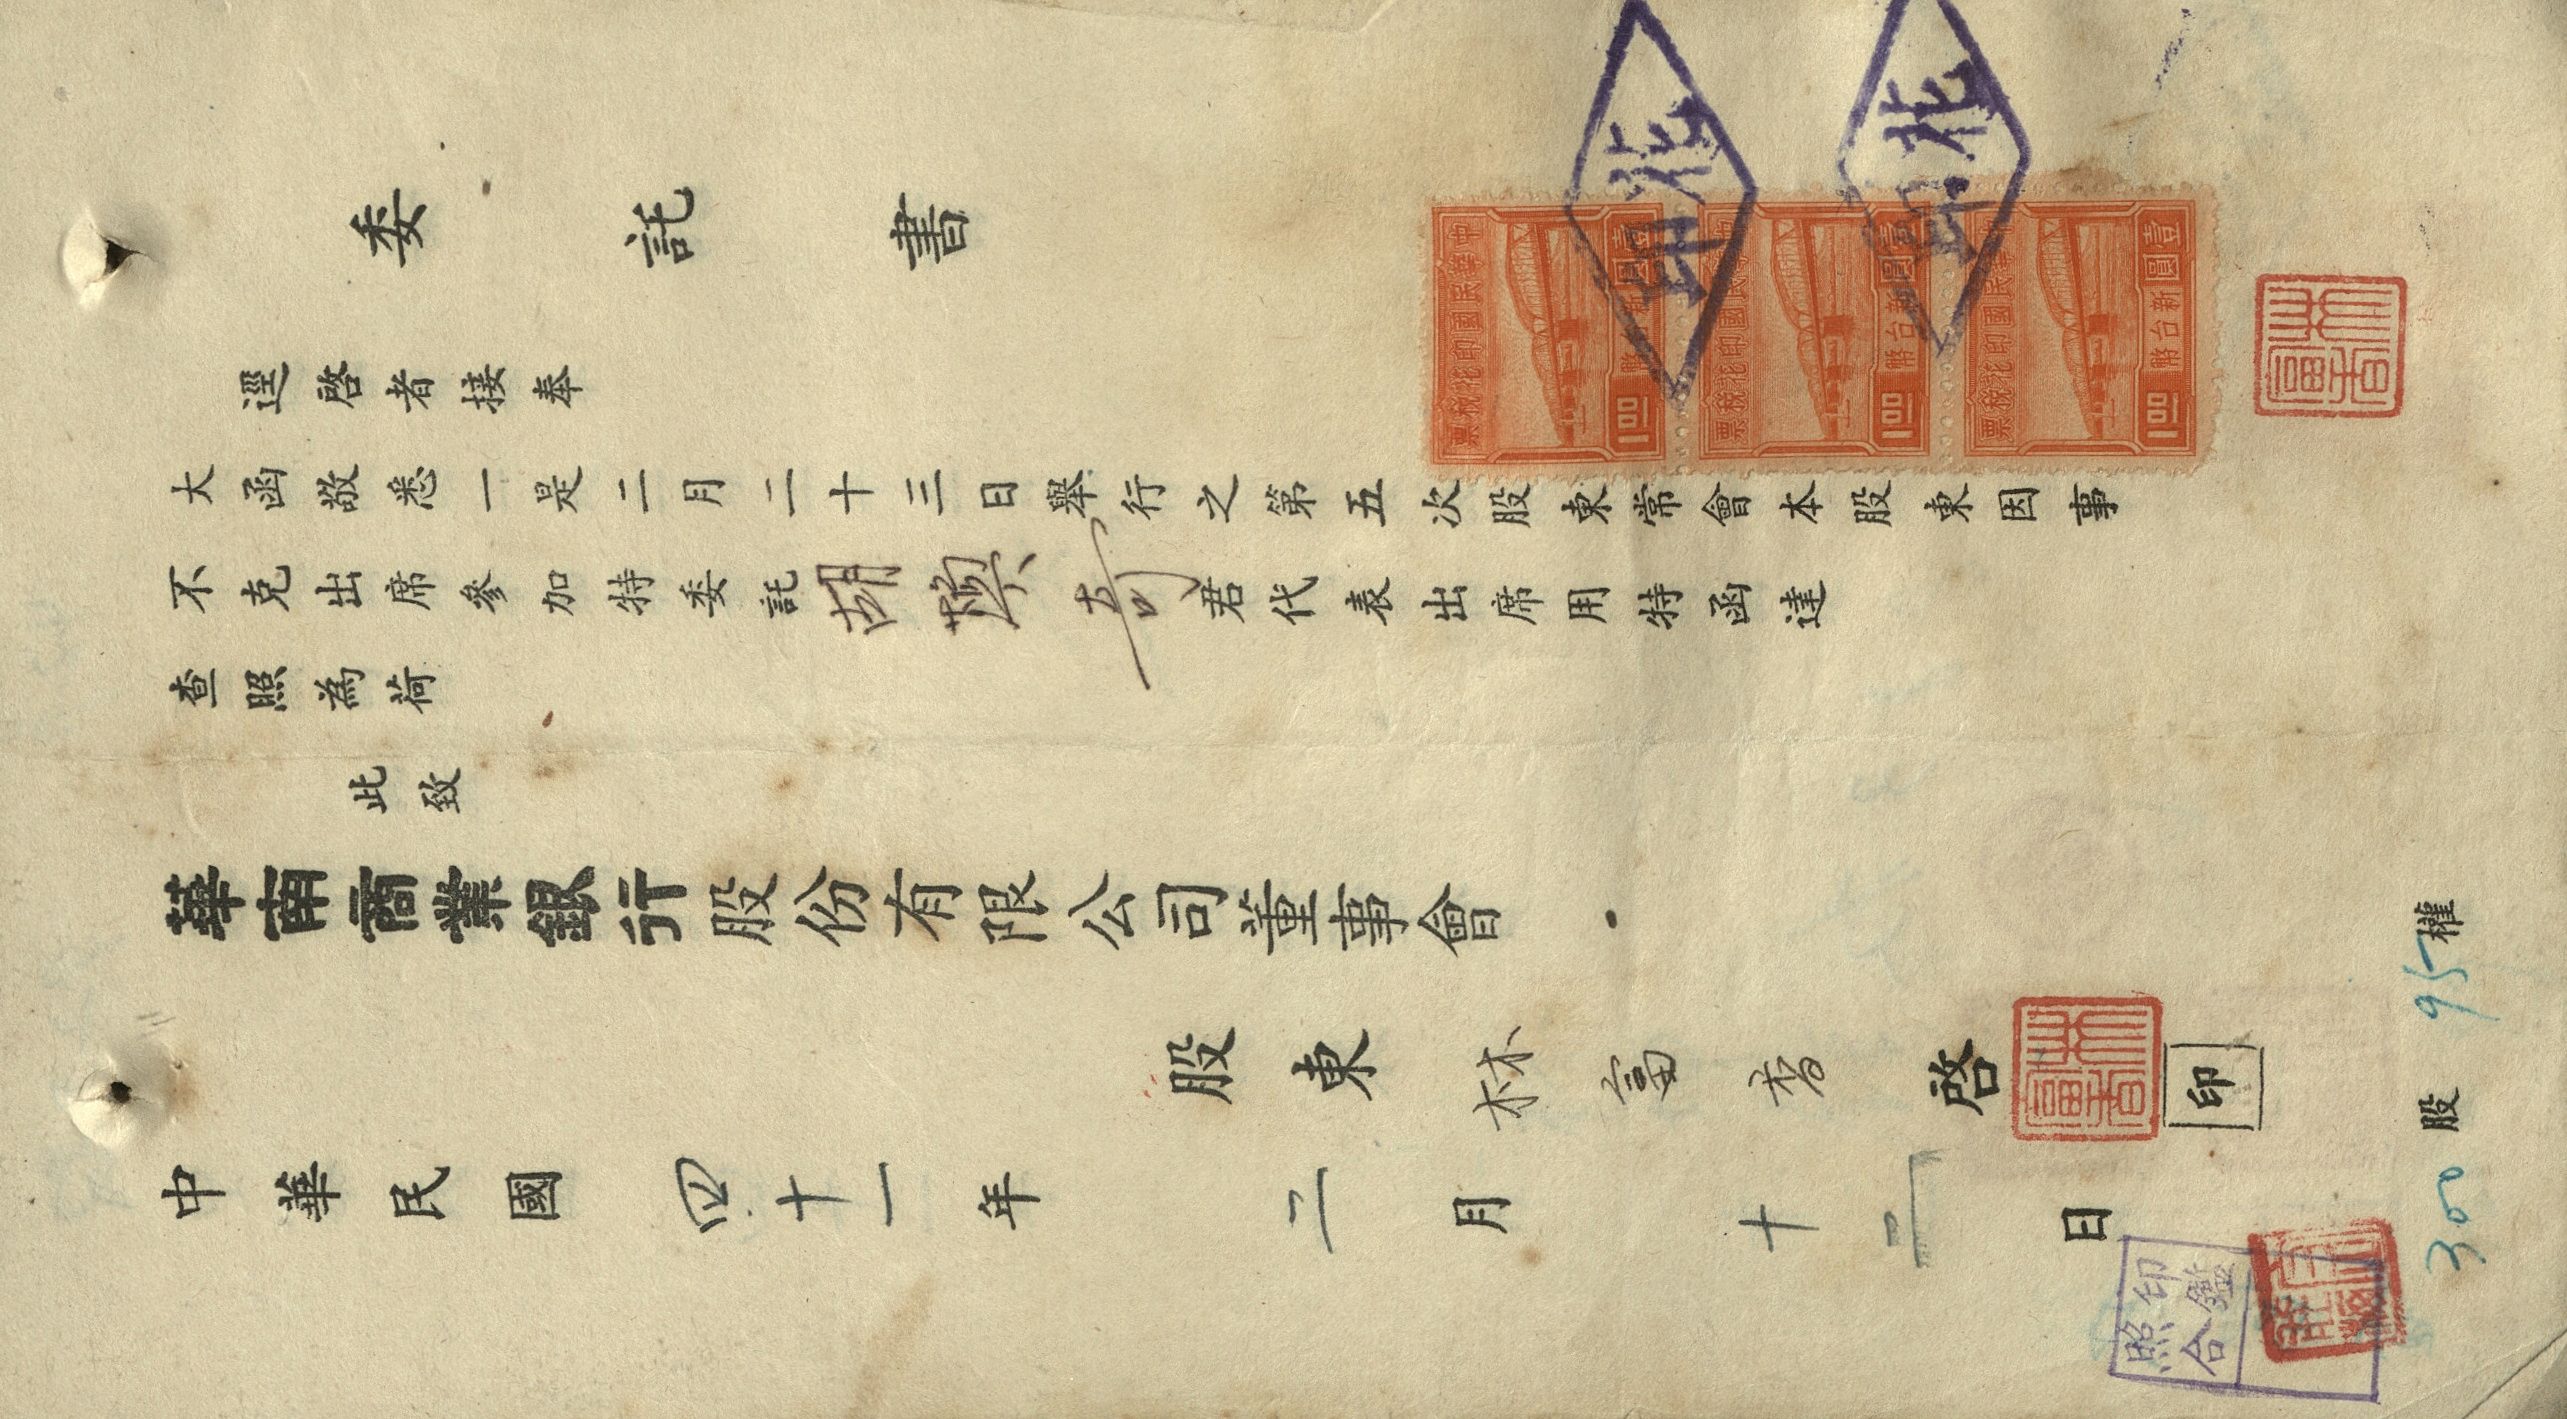 委託書
逕啓者接奉
大函敬悉一是二月二十三日舉行之第五次股東常會本股東因事
不克出席參加特委託胡煥奇君代表出席用特函達
查照為荷
此致
華南商業銀行股份有限公司董事會
股東林富香啓
印
中華民國四十一年二月十二日
300股 95權
中華民國印花稅票
壹圓
新台幣
1.00
中華民國印花稅票
壹圓
新台幣
1.00
中華民國印花稅票
壹圓
新台幣
1.00
印花
印花
林富香
林富香
印鑑
照合